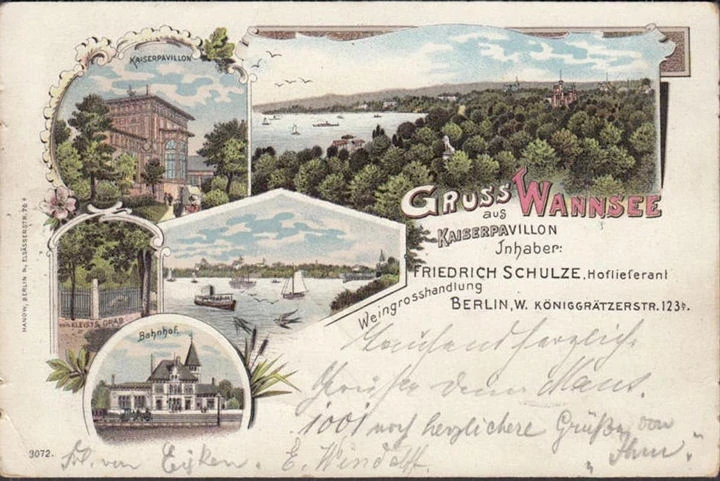 KAISERPAVILLON
GRUSS aus WANNSEE
KAISERPAVILLON
Inhaber:
FRIEDRICH SCHULZE, Hoflieferant
Weingrosshandlung
BERLIN, W. KÖNIGGRÄTZERSTR. 123b.
VON KLEISTS GRAB
Bahnhof.
HANOW, BERLIN N., ELSÄSSERSTR. 70.
3072.
Tausend herzliche
Grüße Maus.
1001 noch herzlichere Grüße von
„Ihm".
von E. Windolff